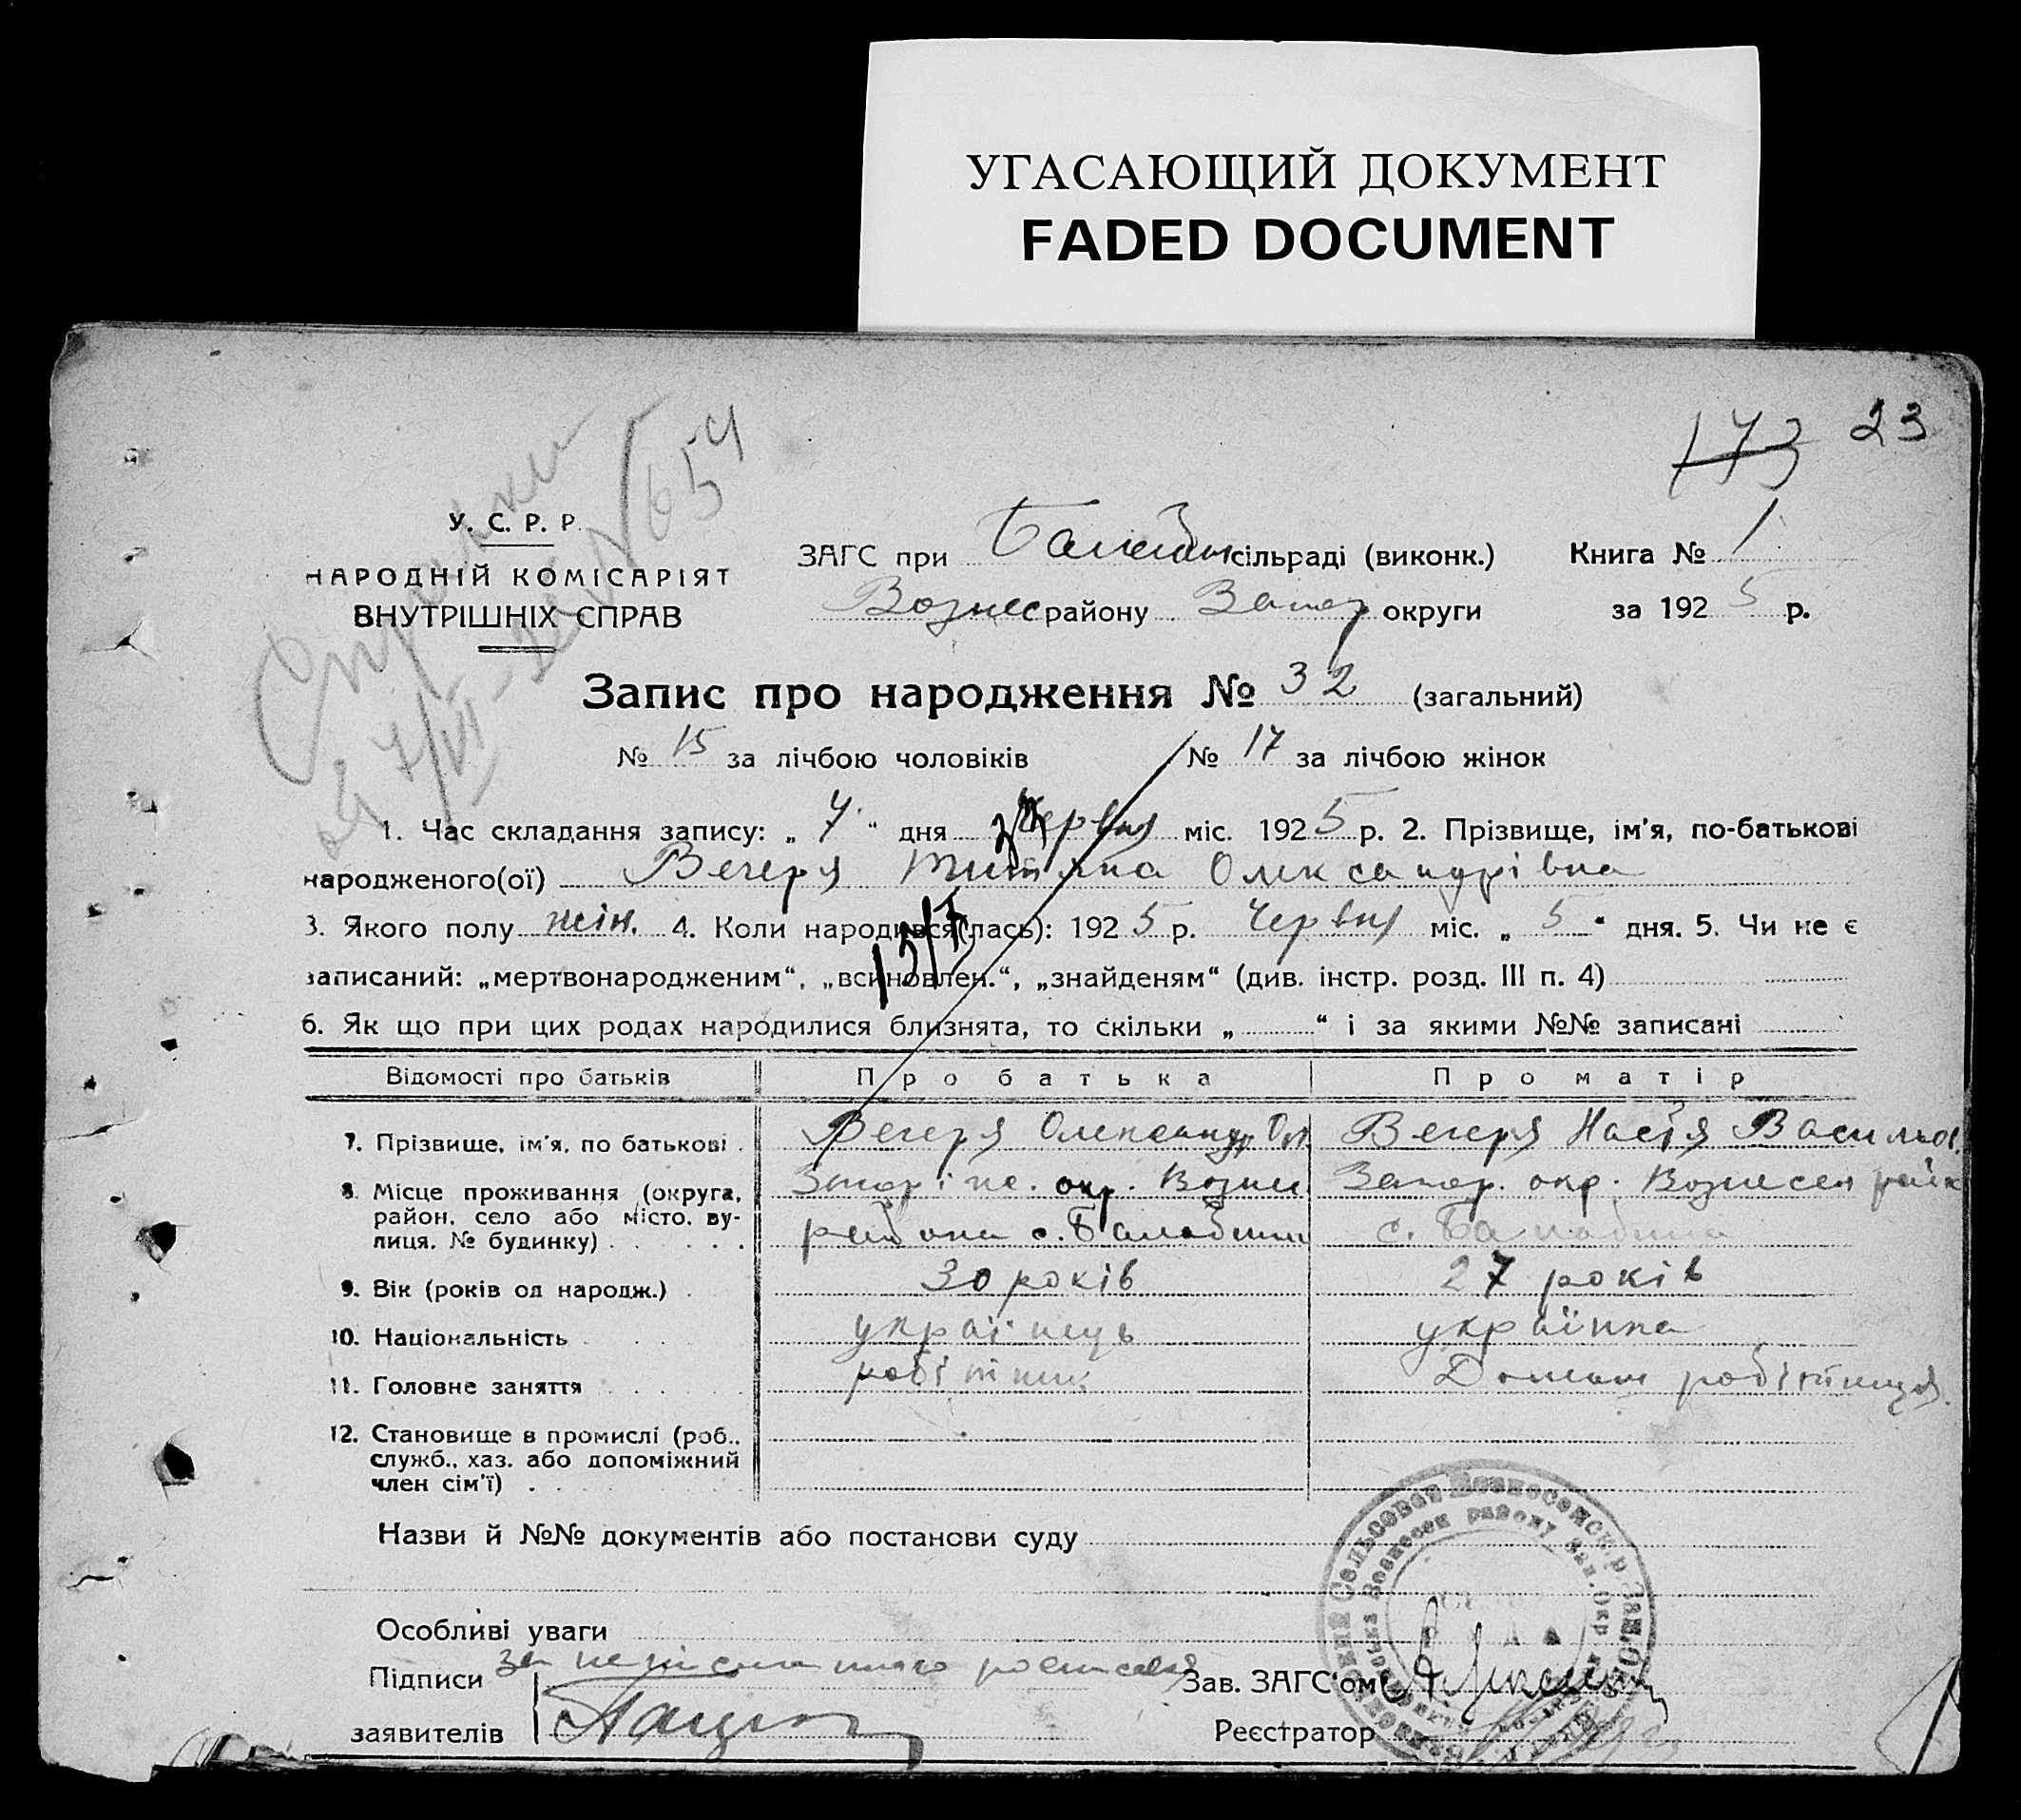 УГАСАЮЩИЙ ДОКУМЕНТ
FADED DOCUMENT
173 23
У. С. Р. Р.
НАРОДНІЙ КОМІСАРІЯТ
ВНУТРІШНІХ СПРАВ
Справки
№ 654
ЗАГС при сільраді (виконк.) Книга № 1
Вознес району Запор округи за 1925 р.
Запис про народження № 32 (загальний)
№ 15 за лічбою чоловіків № 17 за лічбою жінок
1. Час складання запису: „7“ дня Червня міс. 1925 р. 2. Прізвище, ім'я, по-батькові
народженого(ої) Вечеря Титяна Олександрівна
3. Якого полу жін. 4. Коли народився(лась): 1925 р. Червня міс. „5“ дня. 5. Чи не є
записаний: „мертвонародженим“, „всиновлен.“, „знайденям“ (див. інстр. розд. III п. 4)
6. Як що при цих родах народилися близнята, то скільки „ “ і за якими №№ записані
Відомості про батьків Про батька Про матір
7. Прізвище, ім'я, по батькові . Вечеря Олександр Вечеря Настя Васильов.
8. Місце проживання (округа, район, село або місто, вулиця, № будинку) окр. Возн Запор. окр. Вознесен район
району с. Балабин с. Балабина
9. Вік (років од народж.) . 30 років 27 років
10. Національність українець українка
11. Головне заняття робітник Домашн робітниця.
12. Становище в промислі (роб.,
служб., хаз. або допоміжний
член сім'ї) .
Назви й №№ документів або постанови суду
Особливі уваги
Підписи Зав. ЗАГС'ом
заявителів Реєстратор